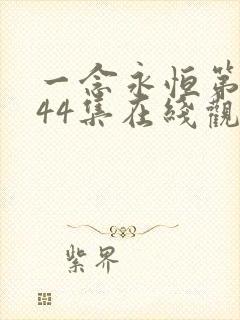 一念永恒第
44集在綫觀
紫界